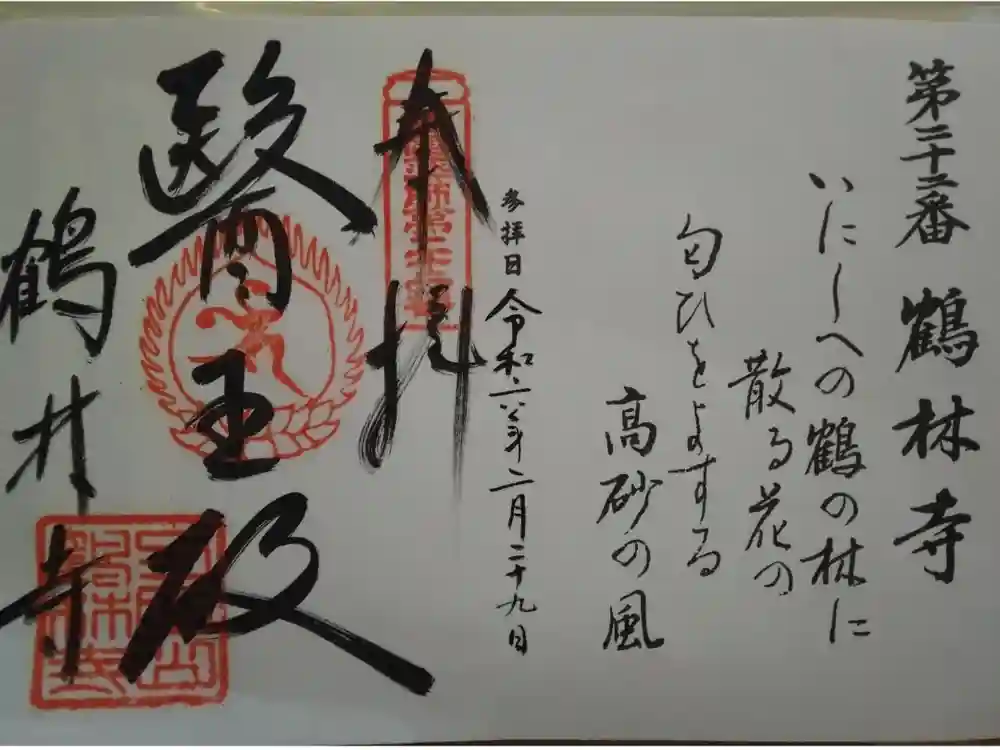 第二十二番 鶴林寺
いにしへの鶴の林に
散る花の
匂ひをよする
高砂の風
参拝日 令和六年二月二十九日
奉拝
醫王殿
鶴林寺